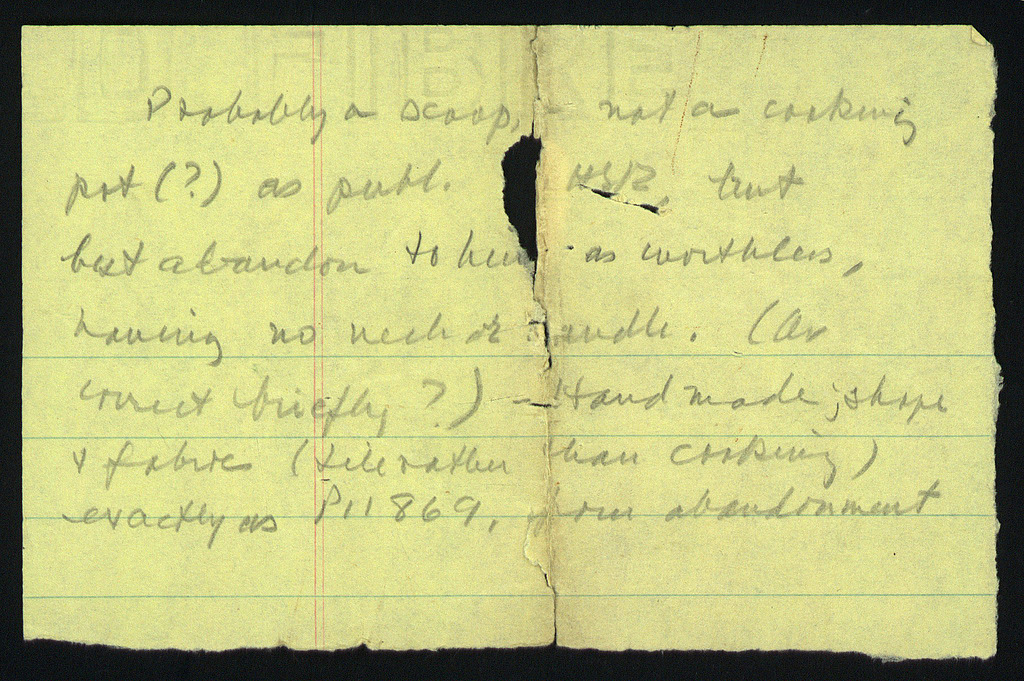 Probably a scoop, - not a cooking
pot (?) as publ. but
best abandon to him as worthless,
having no neck or handle. (Or
correct briefly?) - Handmade; shape
& fabric (tile rather than cooking)
exactly as P11869, from abandonment